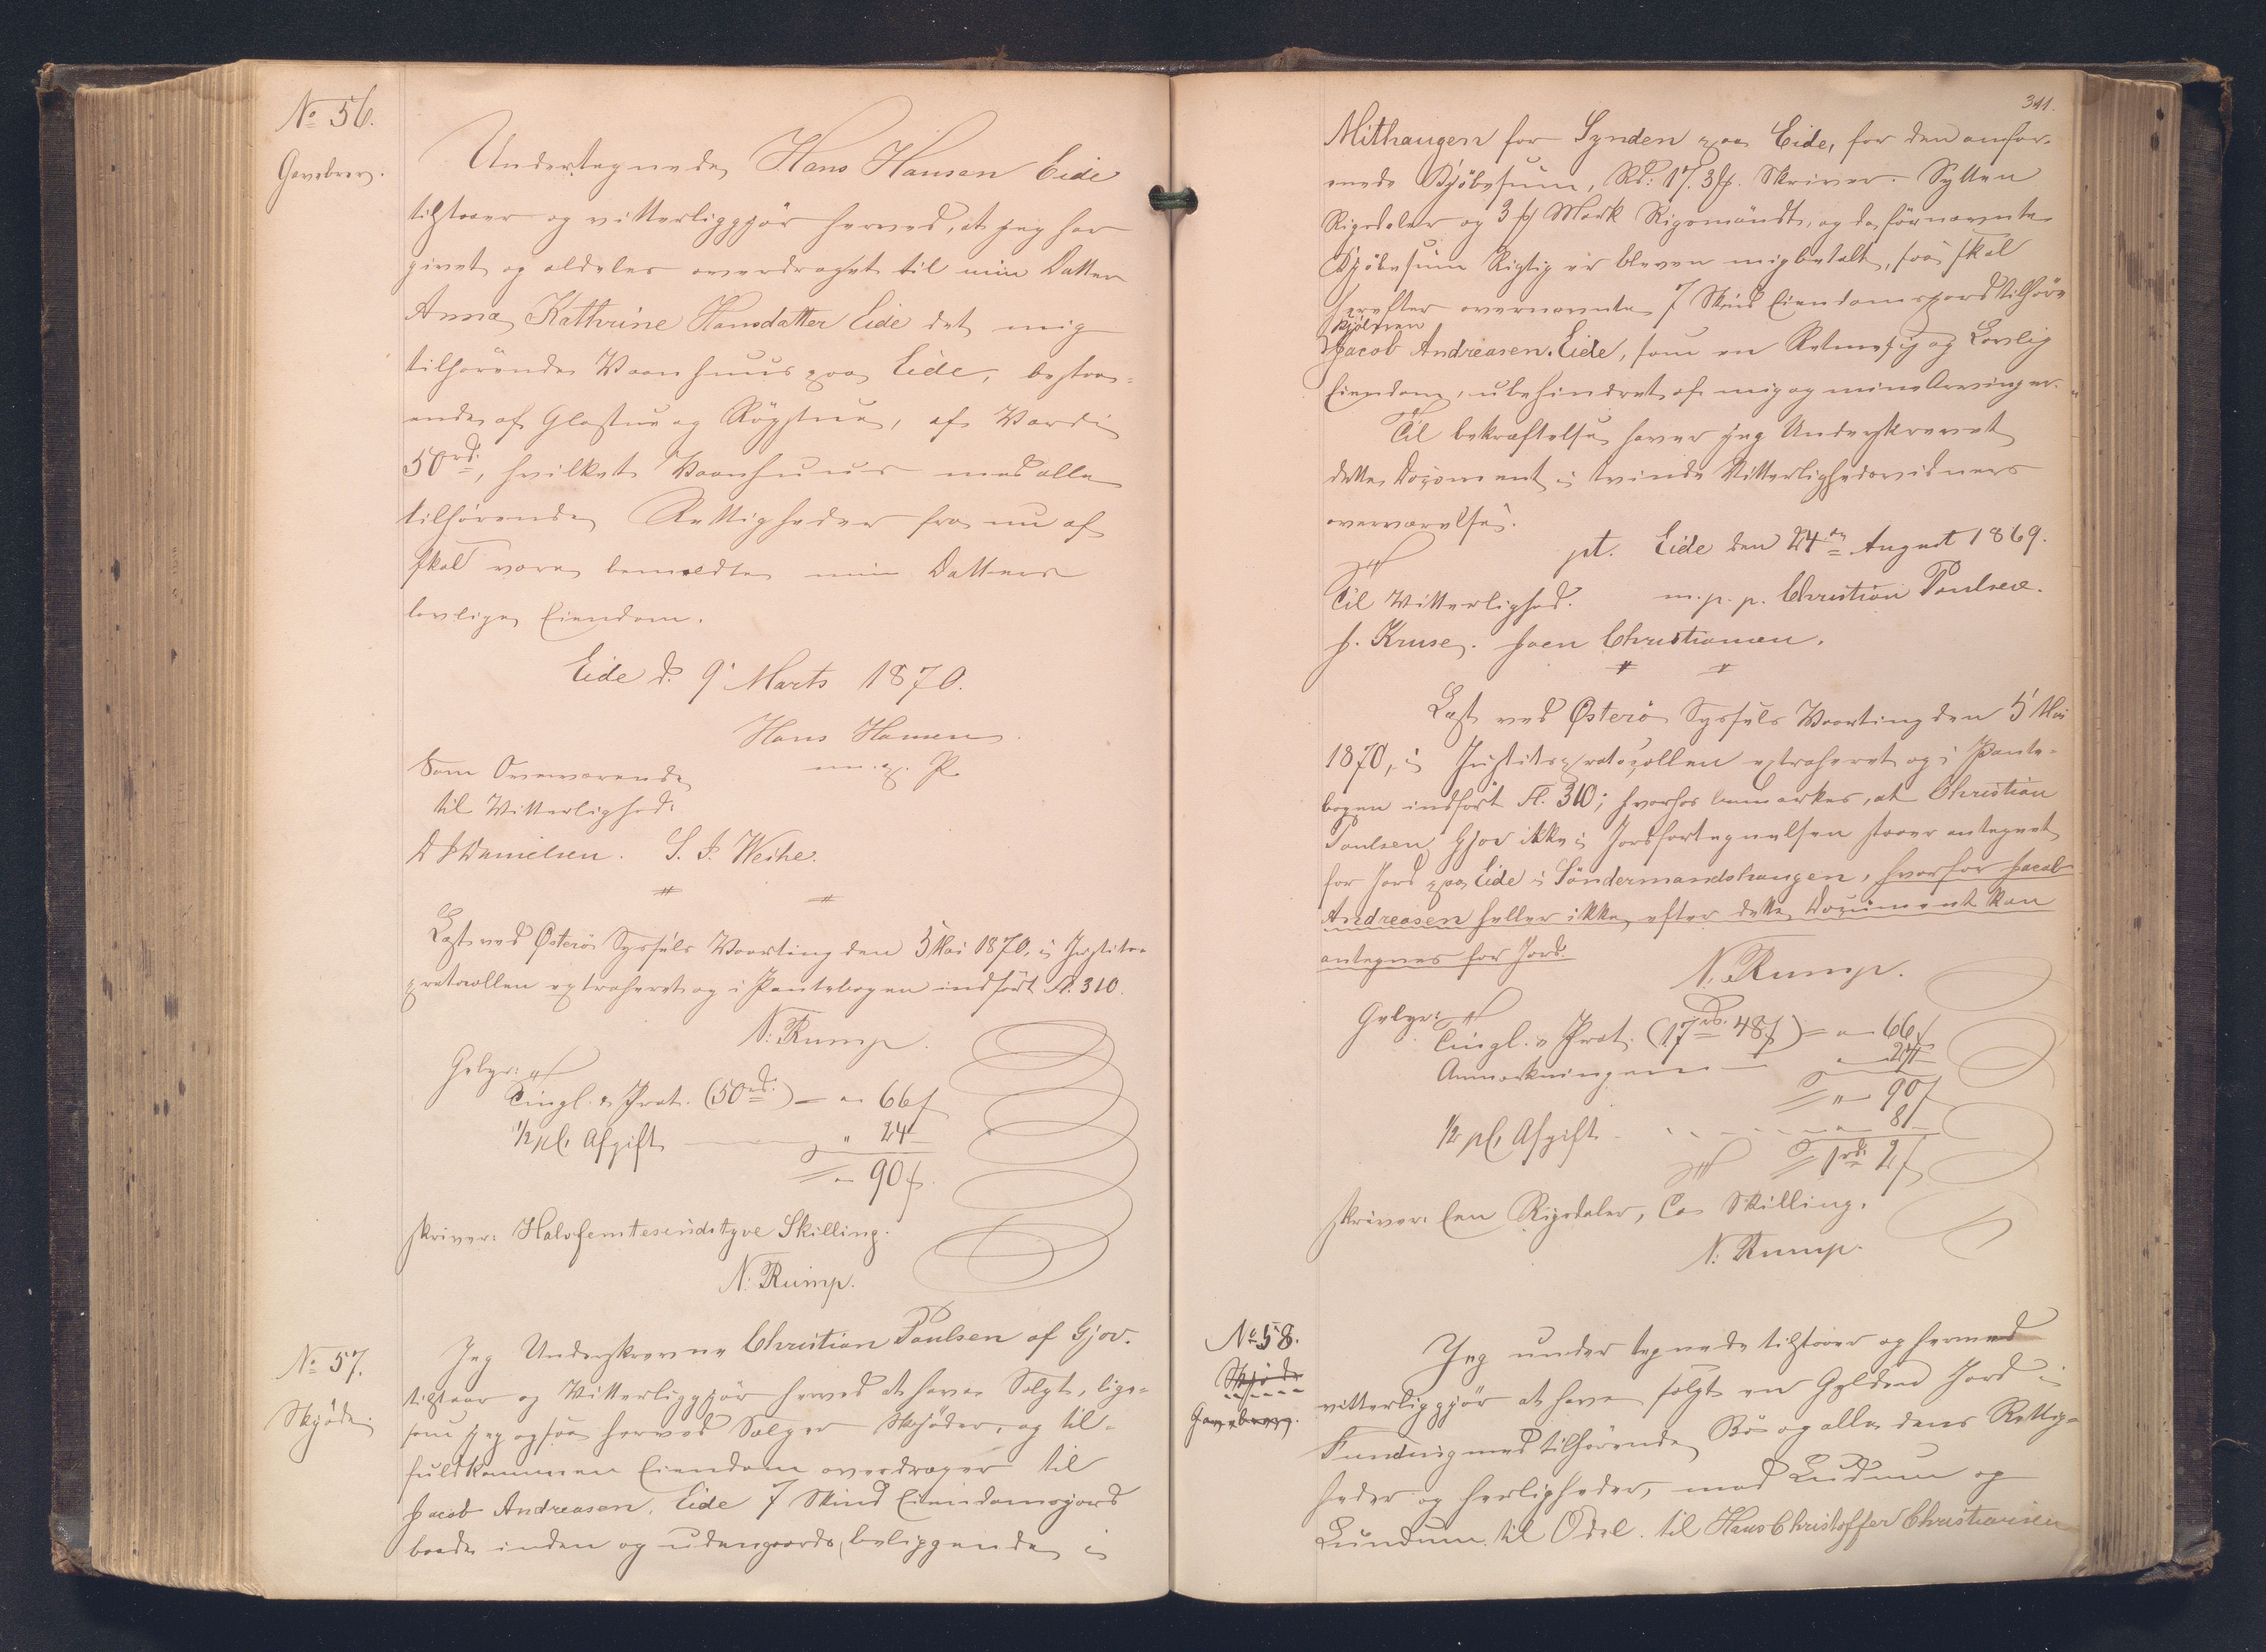 No 56.
Gavebrev.
Undertegnede Hans Hansen Eide
tilstaaer og vitterliggjör herved, at jeg har
givet og aldeles overdraget til min Datter
Anna Kathrine Hansdatter Eide det mig
tilhörende Vaanhuus paa Eide, bestaa-
ende af Glastue og Rögstue, af Værdi
50rd., hvilket Vaanhuus med alle
tilhörende Rettigheder fra nu af
skal være bemeldte min Datters
lovlige Eiendom.
Eide d. 9' Marts 1870.
Hans Hansen
m. p. P.
Som Overværende
til Vitterlighed:
D J Danielsen. S. J. Weihe.
Læst ved Österö Syssels Vaarting den 5' Mai 1870, i Justits-
protocollen extraheret og i Pantebogen indfört Fl. 310.
N. Rump.
Gebyr:
Tingl. & Prot. (50rd.) = " 66 s
1/2 pCt Afgift " 24
= " 90 s.
skriver: Halvfemtesindstyve Skilling.
N. Rump.
No 57.
Skjöde.
Jeg Underskrevne Christian Poulsen af Gjov.
tilstaar og Vitterliggjör herved at have Solgt, lige-
som jeg ogsaa herved Sælger Skjöder, og til
fuldkommen Eiendom overdrager til
Jacob Andreasen. Eide 7 Skind Eiendomsjord
baade inden og udengards, beliggende i
311.
Mithaugen for Synden paa Eide, for den omfor-
enede Kjöbesum, Rd: 17. 3 Sk. Skriver. Sytten
Rigsdaler og 3 Mark Rigsmöndt, og da förnævnte
Kjöbesum Rigtig er bleven mig betalt, saa skal
herefter ovennævnte 7 Skind Eiendomsjord tilhöre
Kjöberen
Jacob Andreasen. Eide, som en Retmæsig og Lovlig
Eiendom, ubehindret af mig og mine Arvinger.
Til bekræftelse haver jeg Underskrevet
dette Document i tvinde Vitterlighedsvidners
overværelse.
pt. Eide den 24de August 1869.
Til Vitterlighed. m. p. p. Christian Poulsen.
J. Kruse. Joen Christiansen.
Læst ved Österö Syssels Vaarting den 5' Mai
1870, i Justitsprotocollen extraheret og i Pante-
bogen indfört Fl. 310; hvorhos bemærkes, at Christian
Poulsen Gjov ikke i Jordfortegnelsen staaer antegnet
for Jord paa Eide i Söndermandshaugen, hvorfor Jacob
Andreasen heller ikke efter dette Document kan
antegnes for Jord.
N. Rump.
Gebyr:
Tingl. & Prot. (17rd. 48 s) = " 66 s
Anmærkningen " 24
= " 90 s
1/2 pCt Afgift " 8
= 1rd. 2 s
skriver: Een Rigsdaler, To Skilling.
N. Rump.
No 58.
Skjöde
Gavebrev.
Jeg undertegnede tilstaaer og hermed
vitterliggjör at have solgt en Gylden Jord i
Funding med tilhörende Bö og alle dens Rettig-
heder og herligheder, med Luðum og
Lundum til Odel. til Hans Christoffer Christiansen